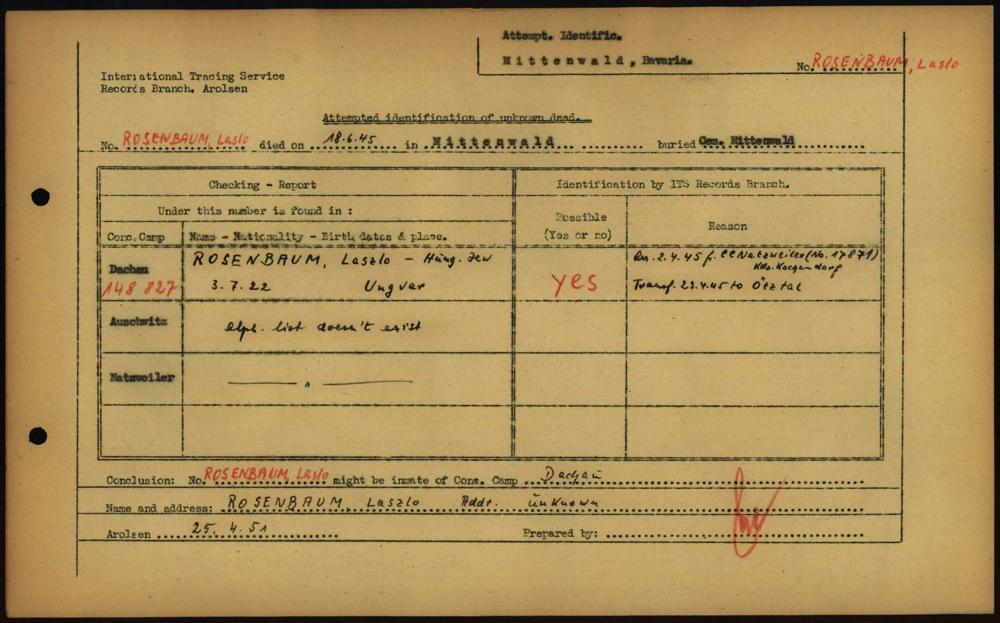 Attempt. Identific.
Mittenwald, Bavaria.
No. ROSENBAUM, Laslo
International Tracing Service
Records Branch. Arolsen
Attempted identification of unknown dead.
No. ROSENBAUM, Laslo died on 18.6.45 in Mittenwald buried Cem. Mittenwald
Checking - Report
Identification by ITS Records Branch.
Under this number is found in :
Possible
(Yes or no)
Reason
Conc. Camp
Name - Nationality - Birth dates & place.
Dachau
ROSENBAUM, Laszlo - Hung. Jew
Arr. 2.4.45 f. CC Natzweiler (No. 17871)
Kdo. Kochendorf
148 827
3.7.22 Ungvar
yes
Transf. 23.4.45 to Ötztal
Auschwitz
alph. list doesn't exist
Natzweiler
— " —
Conclusion: No. ROSENBAUM, Laslo might be inmate of Conc. Camp Dachau
Name and address: ROSENBAUM, Laszlo Addr. unknown
Arolsen 25. 4. 51 Prepared by: